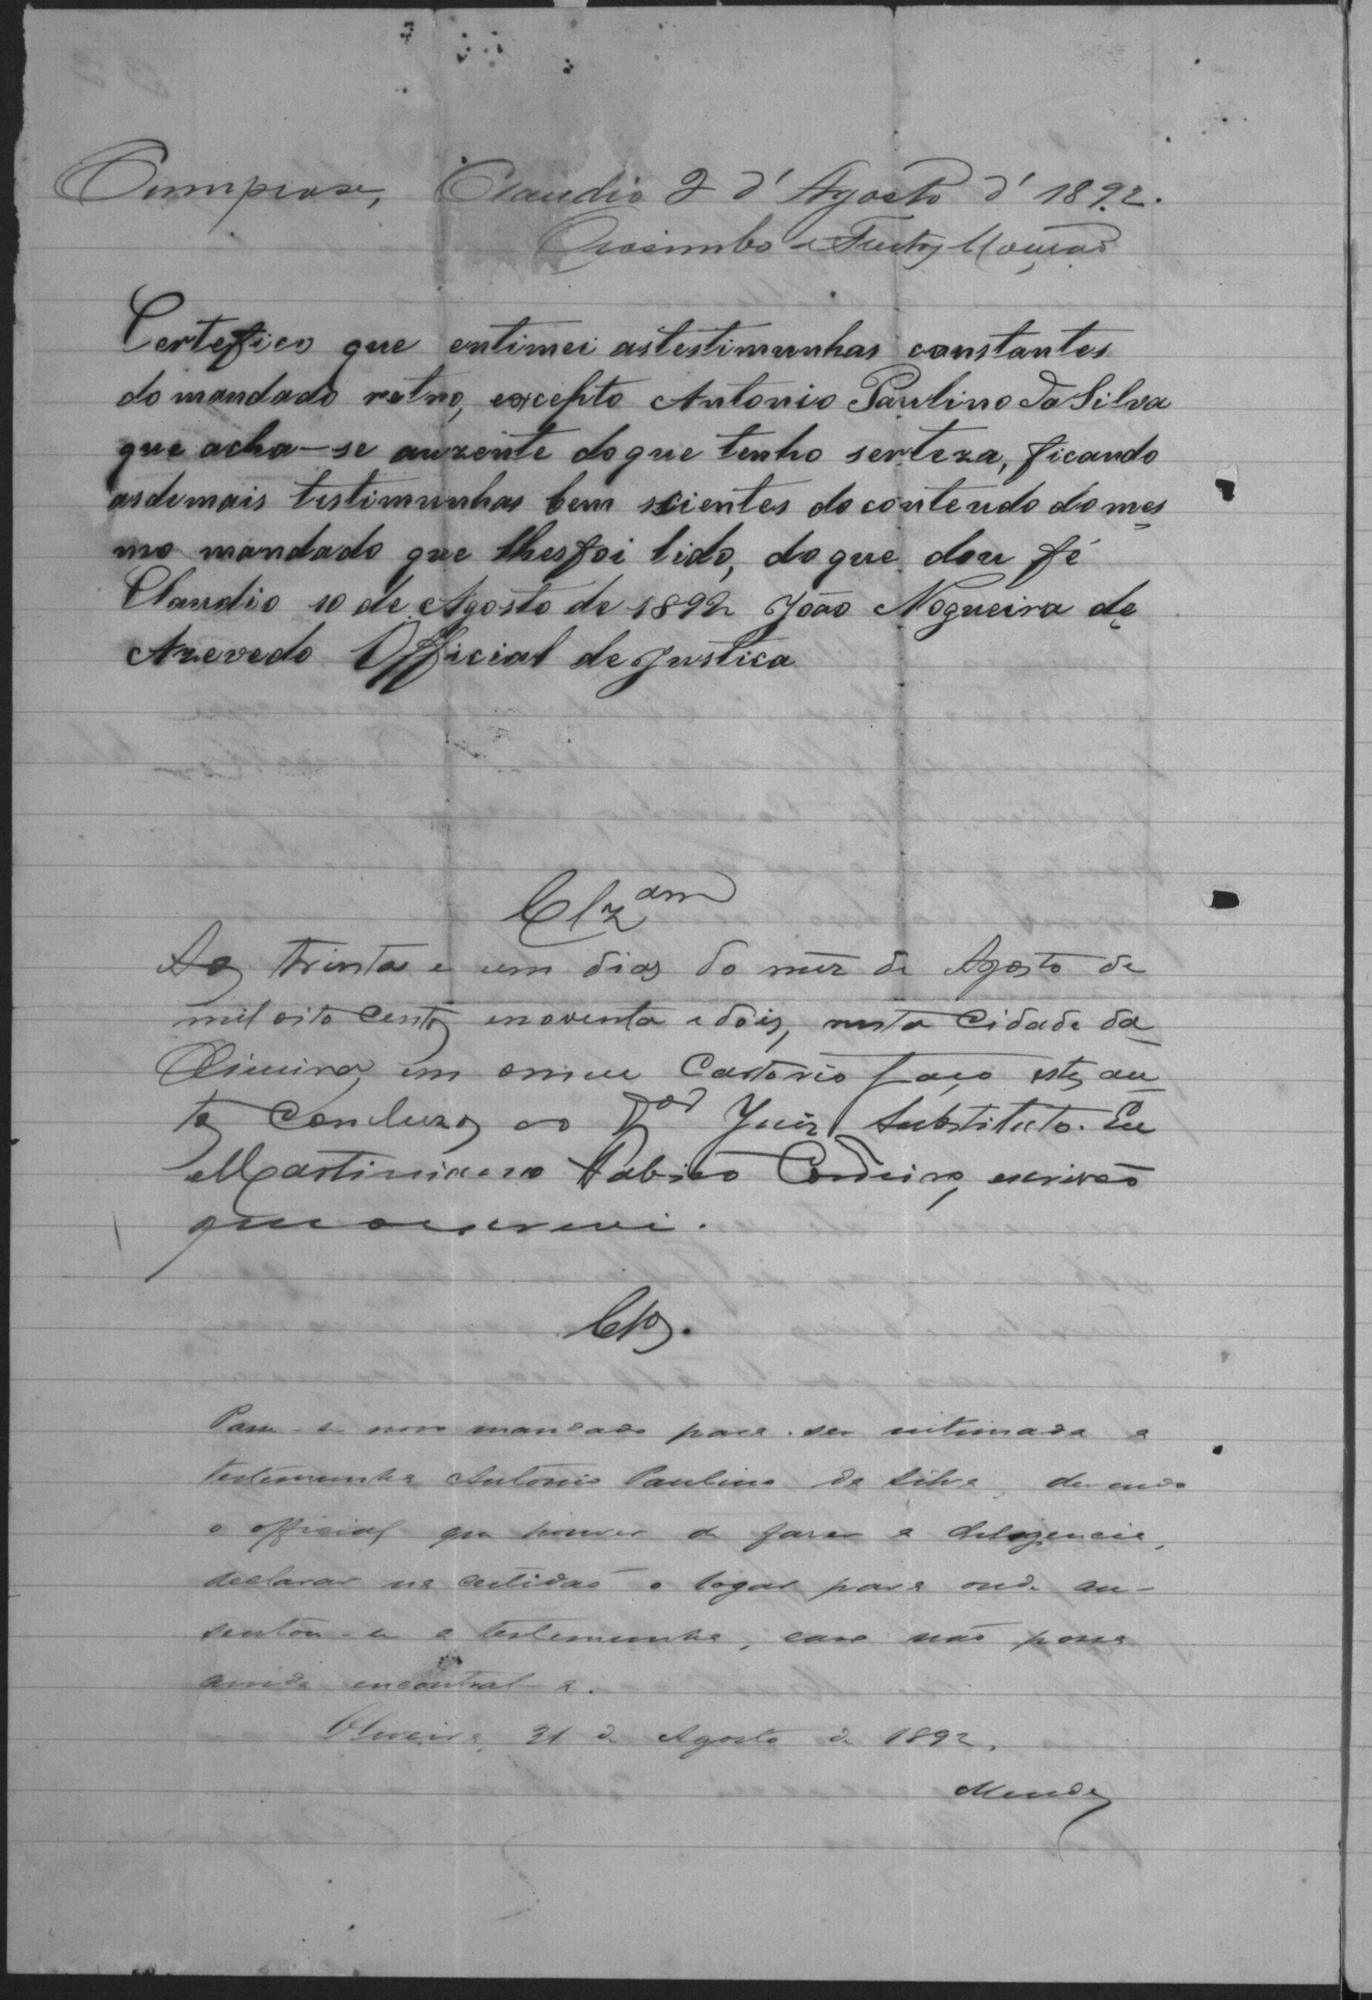 Cumprase, Claudio 2 d'Agosto d'1892.
Freitas Mourão
Certefico que entimei astestimunhas constantes
do mandado retro, excepto Antonio Paulino da Silva
que acha-se auzente doque tenho serteza, ficando
asdemais testimunhas bem scientes do conteudo do mes
mo mandado que lhesfoi lido, do que dou fé
Claudio 10 de Agosto de 1892 João Nogueira de
Azevedo Official de Justica
Clzam
Aos trinta e um dias do mez de Agosto de
mil oito centos enoventa e dois, nesta Cidade da
Oliveira, em omeu Cartorio faço estes au
tos concluzos ao Dor Juiz Substituto. Eu
Martiniano Cordeiro, escrivão
que oescrevi.
Clos.
Passe-se novo mandado para ser intimada a
testemunha Antonio Paulino da Silva, devendo
o official que houver de fazer a diligencia,
declarar na certidão o logar para onde au-
sentou-se a testemunha, caso não possa
ainda encontral-a.
Oliveira, 31 de Agosto de 1892.
Mendes